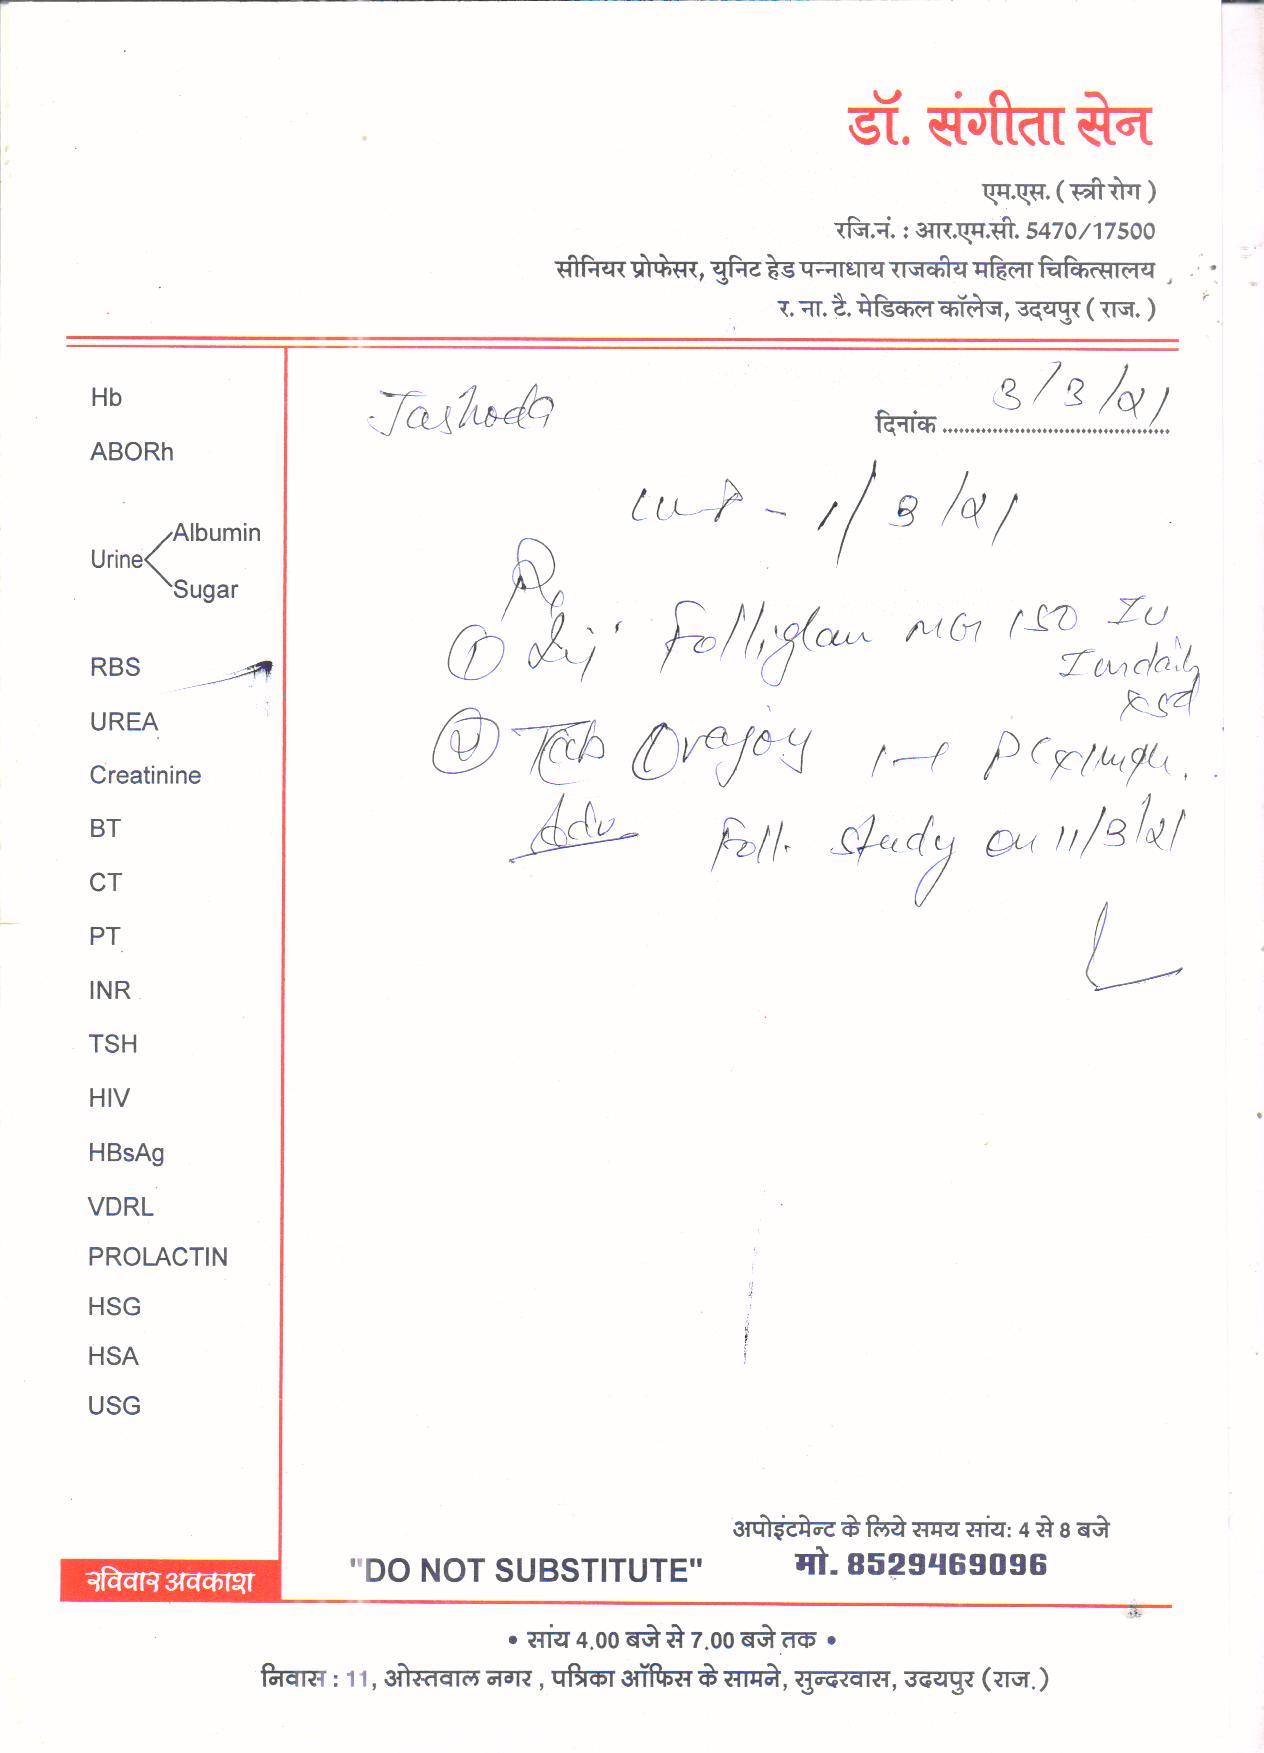 डॉ. संगीता सेन
एम.एस. ( स्त्री रोग )
रजि.नं. : आर.एम.सी. 5470/17500
सीनियर प्रोफेसर, युनिट हेड पन्नाधाय राजकीय महिला चिकित्सालय
र. ना. टै. मेडिकल कॉलेज, उदयपुर ( राज. )
Jashoda
दिनांक 3/3/21
LMP - 1/3/21
Rx
① Inj. Folliglan MG 150 IU
IM daily
x 5d
② Tab Ovajoy 1-1 PC x 1 mth.
Adv Foll. study on 11/3/21
Hb
ABORh
Urine
Albumin
Sugar
RBS
UREA
Creatinine
BT
CT
PT
INR
TSH
HIV
HBsAg
VDRL
PROLACTIN
HSG
HSA
USG
रविवार अवकाश
"DO NOT SUBSTITUTE"
अपोइंटमेन्ट के लिये समय सांय: 4 से 8 बजे
मो. 8529469096
• सांय 4.00 बजे से 7.00 बजे तक •
निवास : 11, ओस्तवाल नगर , पत्रिका ऑफिस के सामने, सुन्दरवास, उदयपुर (राज.)